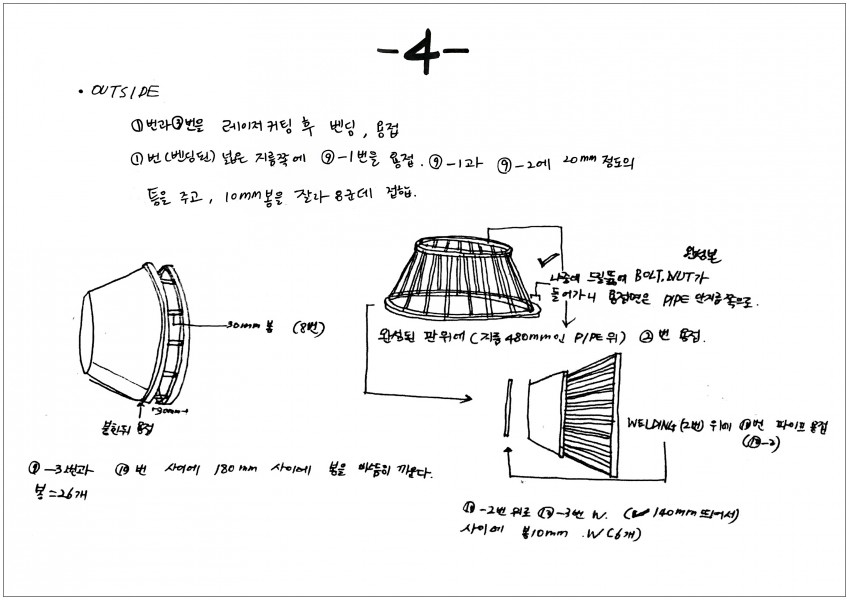 -4-
• OUTSIDE
①번과 ③번을 레이저커팅 후 벤딩, 용접
①번(벤딩된) 넓은 지름쪽에 ⑨-1번을 용접. ⑨-1과 ⑨-2에 20mm 정도의
틈을 주고, 10mm봉을 잘라 8군데 접합.
완성본
나중에 드릴뚫어 BOLT, NUT가
들어가니 용접면은 PIPE 안지름쪽으로.
30mm 봉 (8번)
완성된 판위에 (지름 480mm인 PIPE위) ②번 용접.
90mm
용접
WELDING(2번) 위에 ⑩번 파이프 용접
(⑩-2)
⑨-3번과 ⑩번 사이에 180mm 사이에 봉을 비스듬히 끼운다.
봉=26개
⑩-2번 위로 ⑩-3번 W. (140mm 띄어서)
사이에 봉10mm .W(6개)